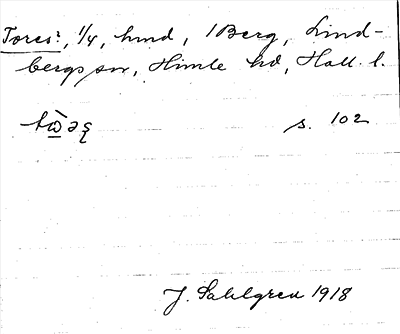 Tores:, 1/4, hmd, 1 Berg, Lind-
bergs sn, Himle hd, Hall. l.
s. 102
J. Sahlgren 1918